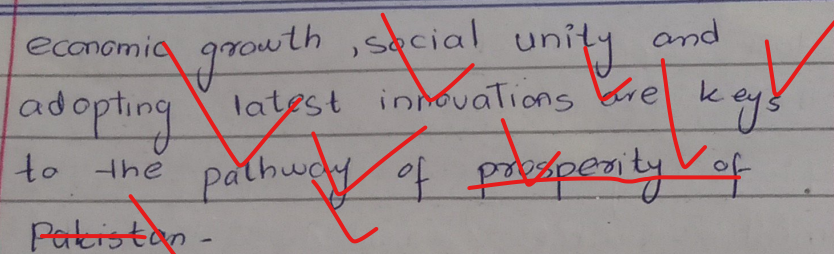 economic growth , social unity and
adopting latest innovations are keys
to the pathway of prosperity of
Pakistan -